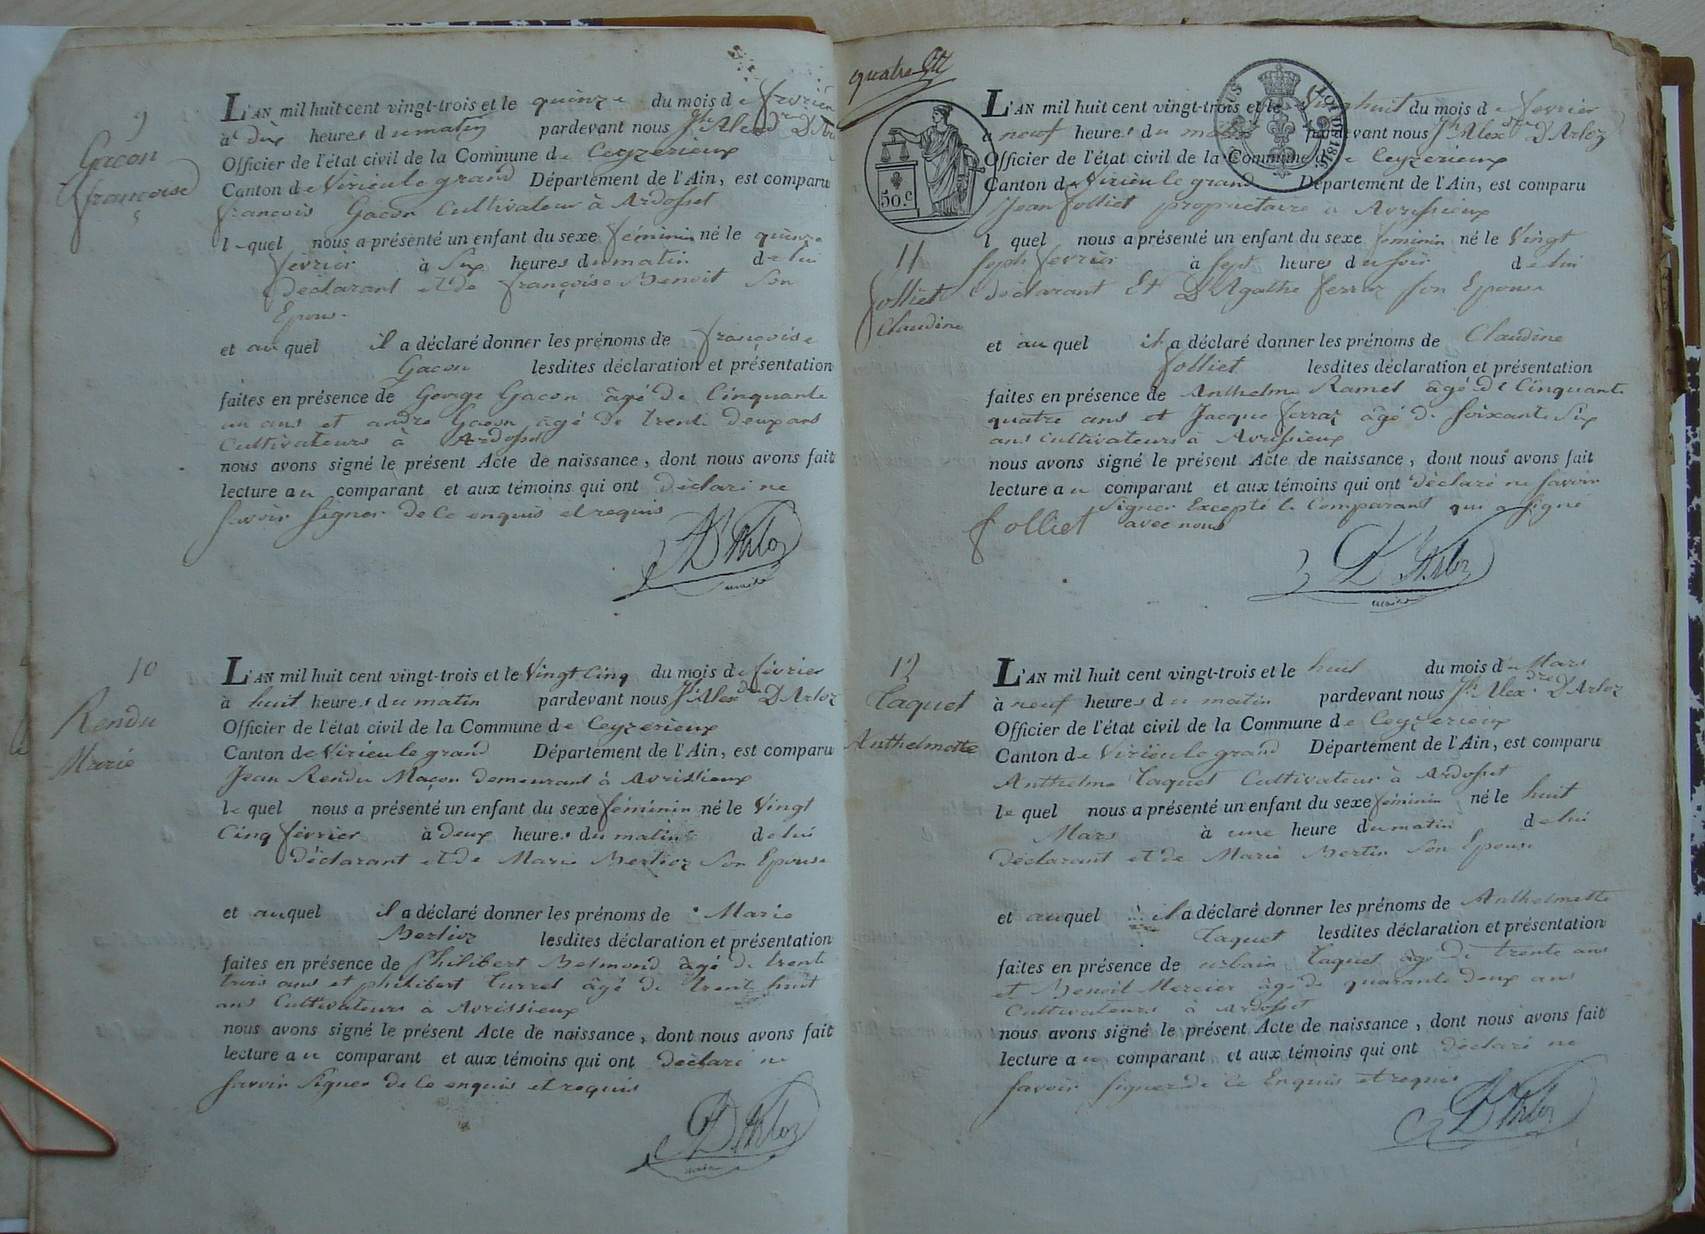 9
Gacon
françoise
L'AN mil huit cent vingt-trois et le quinze du mois de fevrier
à dix heures du matin pardevant nous Jh Alexdre D'Arloz
Officier de l'état civil de la Commune de Ceyzerieux
Canton de Virieu le grand Département de l'Ain, est comparu
françois Gacon Cultivateur à Ardosset
lequel nous a présenté un enfant du sexe féminin né le quinze
fevrier à Six heures du matin de lui
déclarant et de françoise Benoit Son
Epouse
et auquel il a déclaré donner les prénoms de françoise
Gacon lesdites déclaration et présentation
faites en présence de George Gacon âgé de Cinquante
un ans et andré Gacon âgé de trente deux ans
Cultivateurs à Ardosset
nous avons signé le présent Acte de naissance, dont nous avons fait
lecture au comparant et aux témoins qui ont déclaré ne
Savoir Signer de Ce enquis et requis
D'Arloz
maire
10
Rendu
Marie
L'AN mil huit cent vingt-trois et le Vingt Cinq du mois de février
à huit heures du matin pardevant nous Jh Alexdre D'Arloz
Officier de l'état civil de la Commune de Ceyzerieux
Canton de Virieu le grand Département de l'Ain, est comparu
Jean Rendu Maçon demeurant à Avrissieux
lequel nous a présenté un enfant du sexe féminin né le Vingt
Cinq février à deux heures du matin de lui
déclarant et de Marie Berlioz Son Epouse
et auquel il a déclaré donner les prénoms de Marie
Berlioz lesdites déclaration et présentation
faites en présence de Philibert Belmond âgé de trente
trois ans et philibert Turrel âgé de trente huit
ans Cultivateurs à Avrissieux
nous avons signé le présent Acte de naissance, dont nous avons fait
lecture au comparant et aux témoins qui ont déclaré ne
Savoir Signer de Ce enquis et requis
D'Arloz
maire
quatre
50.c
11
folliet
Claudine
L'AN mil huit cent vingt-trois et le Vingt huit du mois de fevrier
a neuf heures du matin pardevant nous Jh Alexdre D'Arloz
Officier de l'état civil de la Commune de Ceyzerieux
Canton de Virieu le grand Département de l'Ain, est comparu
Jean folliet proprietaire a Avrissieux
lequel nous a présenté un enfant du sexe feminin né le Vingt
Sept fevrier à Sept heures du Soir de lui
déclarant Et D Agathe ferraz Son Epouse
et auquel il a déclaré donner les prénoms de Claudine
folliet lesdites déclaration et présentation
faites en présence de Anthelme Ramel âgé de Cinquante
quatre ans et Jacque ferraz âgé de Soixante Six
ans Cultivateurs à Avrissieux
nous avons signé le présent Acte de naissance, dont nous avons fait
lecture au comparant et aux témoins qui ont déclaré ne Savoir
Signer Excepté le Comparant qui a Signé
folliet avec nous
D'Arloz
maire
12
Taquet
Anthelmette
L'AN mil huit cent vingt-trois et le huit du mois de Mars
à neuf heures du matin pardevant nous Jh Alexdre D'Arloz
Officier de l'état civil de la Commune de Ceyzerieux
Canton de Virieu le grand Département de l'Ain, est comparu
Anthelme Taquet Cultivateur à Ardosset
lequel nous a présenté un enfant du sexe féminin né le huit
Mars à une heure du matin de lui
déclarant et de Marie Bertin Son Epouse
et auquel il a déclaré donner les prénoms de Anthelmette
Taquet lesdites déclaration et présentation
faites en présence de urbain Taquet âgé de trente ans
et Benoit Mercier âgé de quarante deux ans
Cultivateurs à Ardosset
nous avons signé le présent Acte de naissance, dont nous avons fait
lecture au comparant et aux témoins qui ont déclaré ne
Savoir Signer de Ce Enquis et requis
D'Arloz